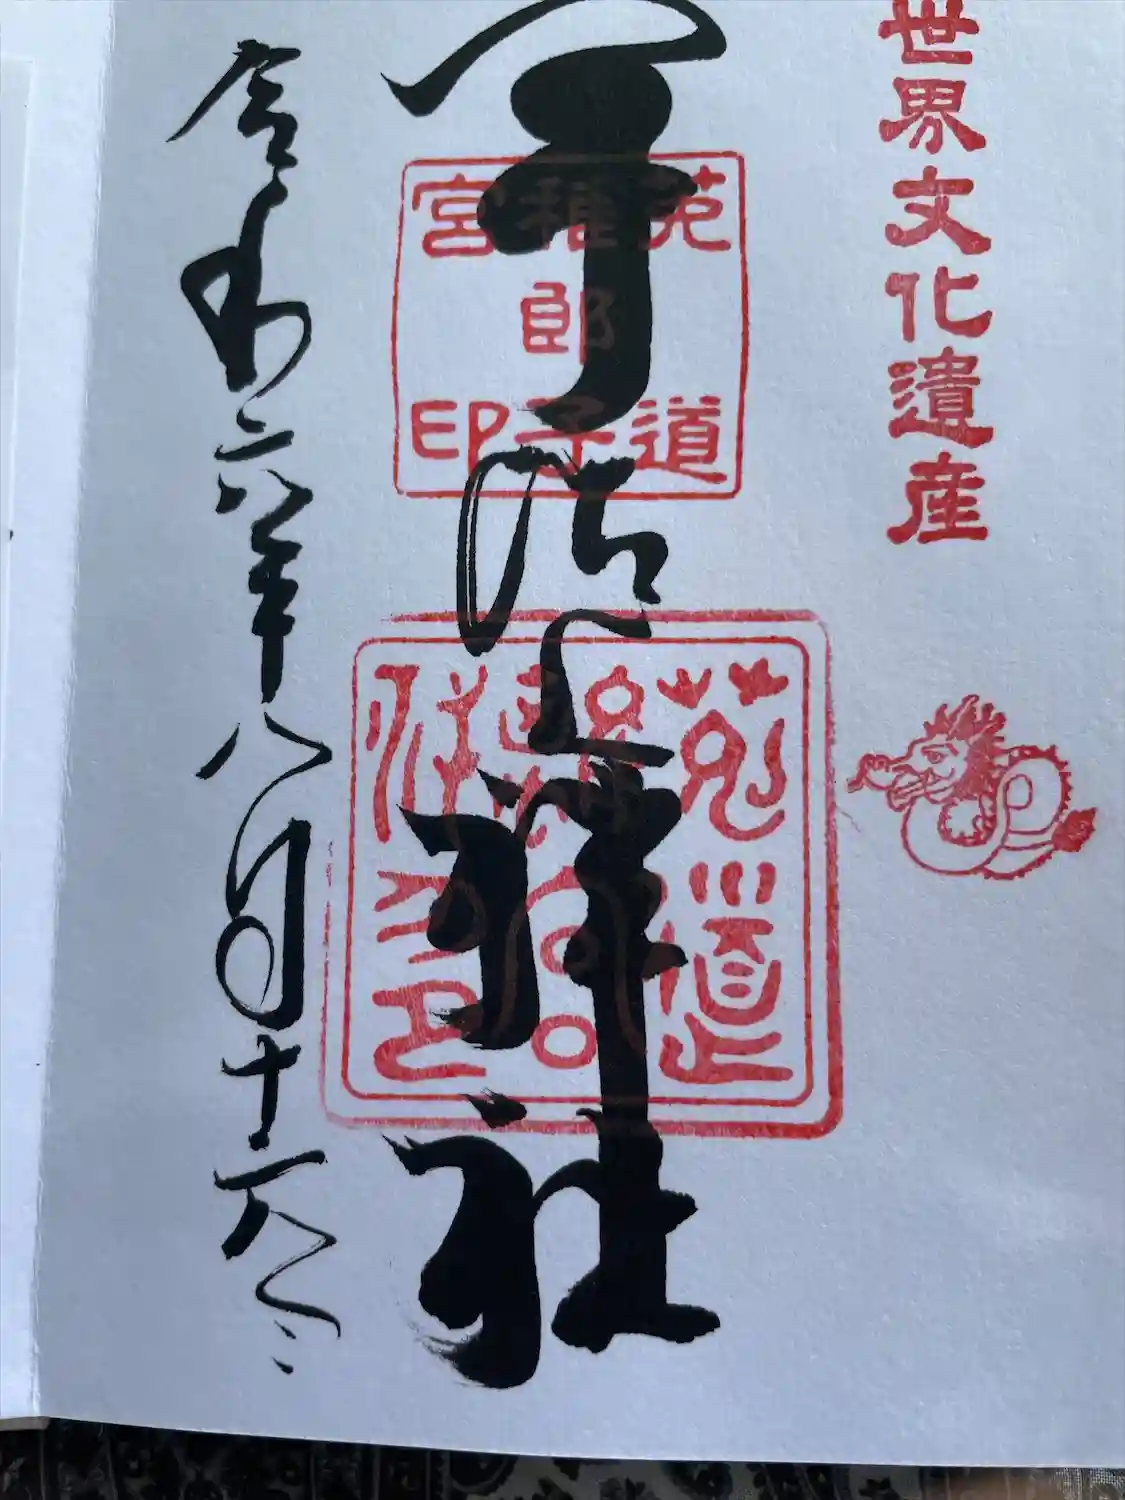 世界文化遺産
宇治上神社
菟道
稚郎子
宮印
令和六年八月十五日